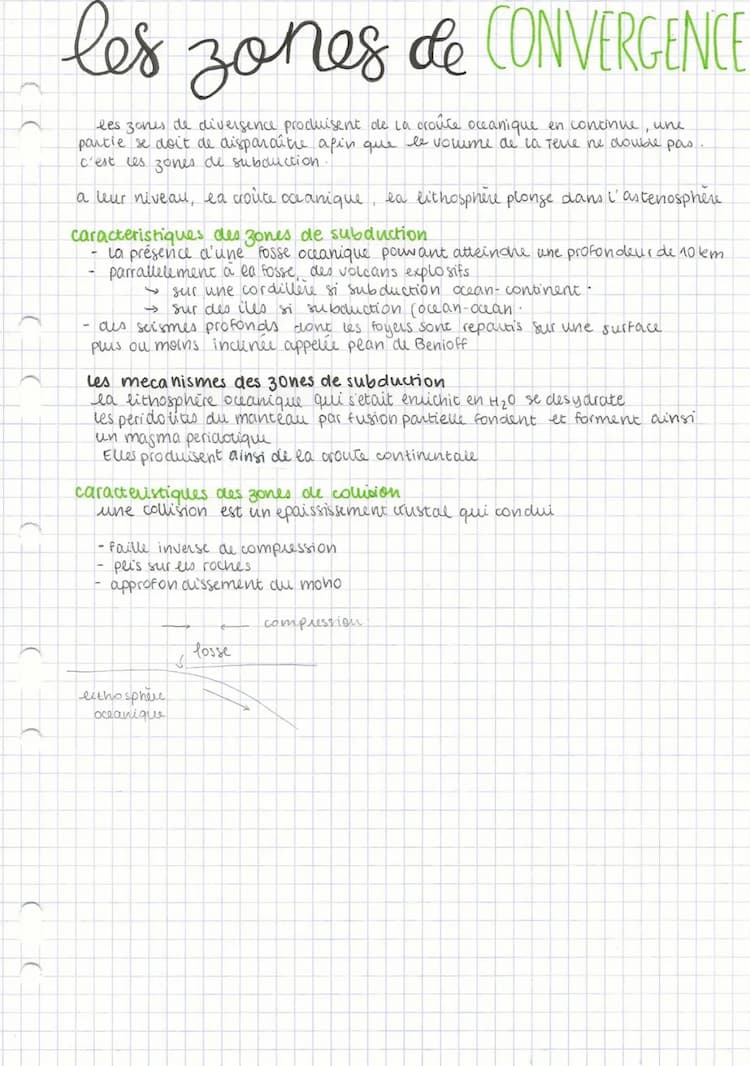 les zones de CONVERGENCE
les zones de divergence produisent de la croûte oceanique en continue, une
partie se doit de disparaître afin que le volume de la Terre ne double pas.
c'est les zones de subduction.
a leur niveau, la croûte oceanique, la lithosphère plonge dans l'astenosphère
caracteristiques des zones de subduction
- la présence d'une fosse oceanique pouvant atteindre une profondeur de 10 km
- parrallelement à la fosse, des volcans explosifs
↳ sur une cordillère si subduction ocean-continent.
→ sur des îles si subduction (ocean-ocean.
- des seismes profonds dont les foyers sont repartis sur une surface
plus ou moins inclinée appelée plan de Benioff
les mecanismes des zones de subduction
la lithosphère oceanique qui s'etait enrichie en H₂O se desydrate
les peridotites du manteau par fusion partielle fondent et forment ainsi
un magma peridotique
Elles produisent ainsi de la croute continentale
caracteristiques des zones de collision
une collision est un epaississement crustal qui condui
- faille inverse de compression
- plis sur les roches
- approfondissement du moho
→ ← compression
fosse
lithosphère
oceanique